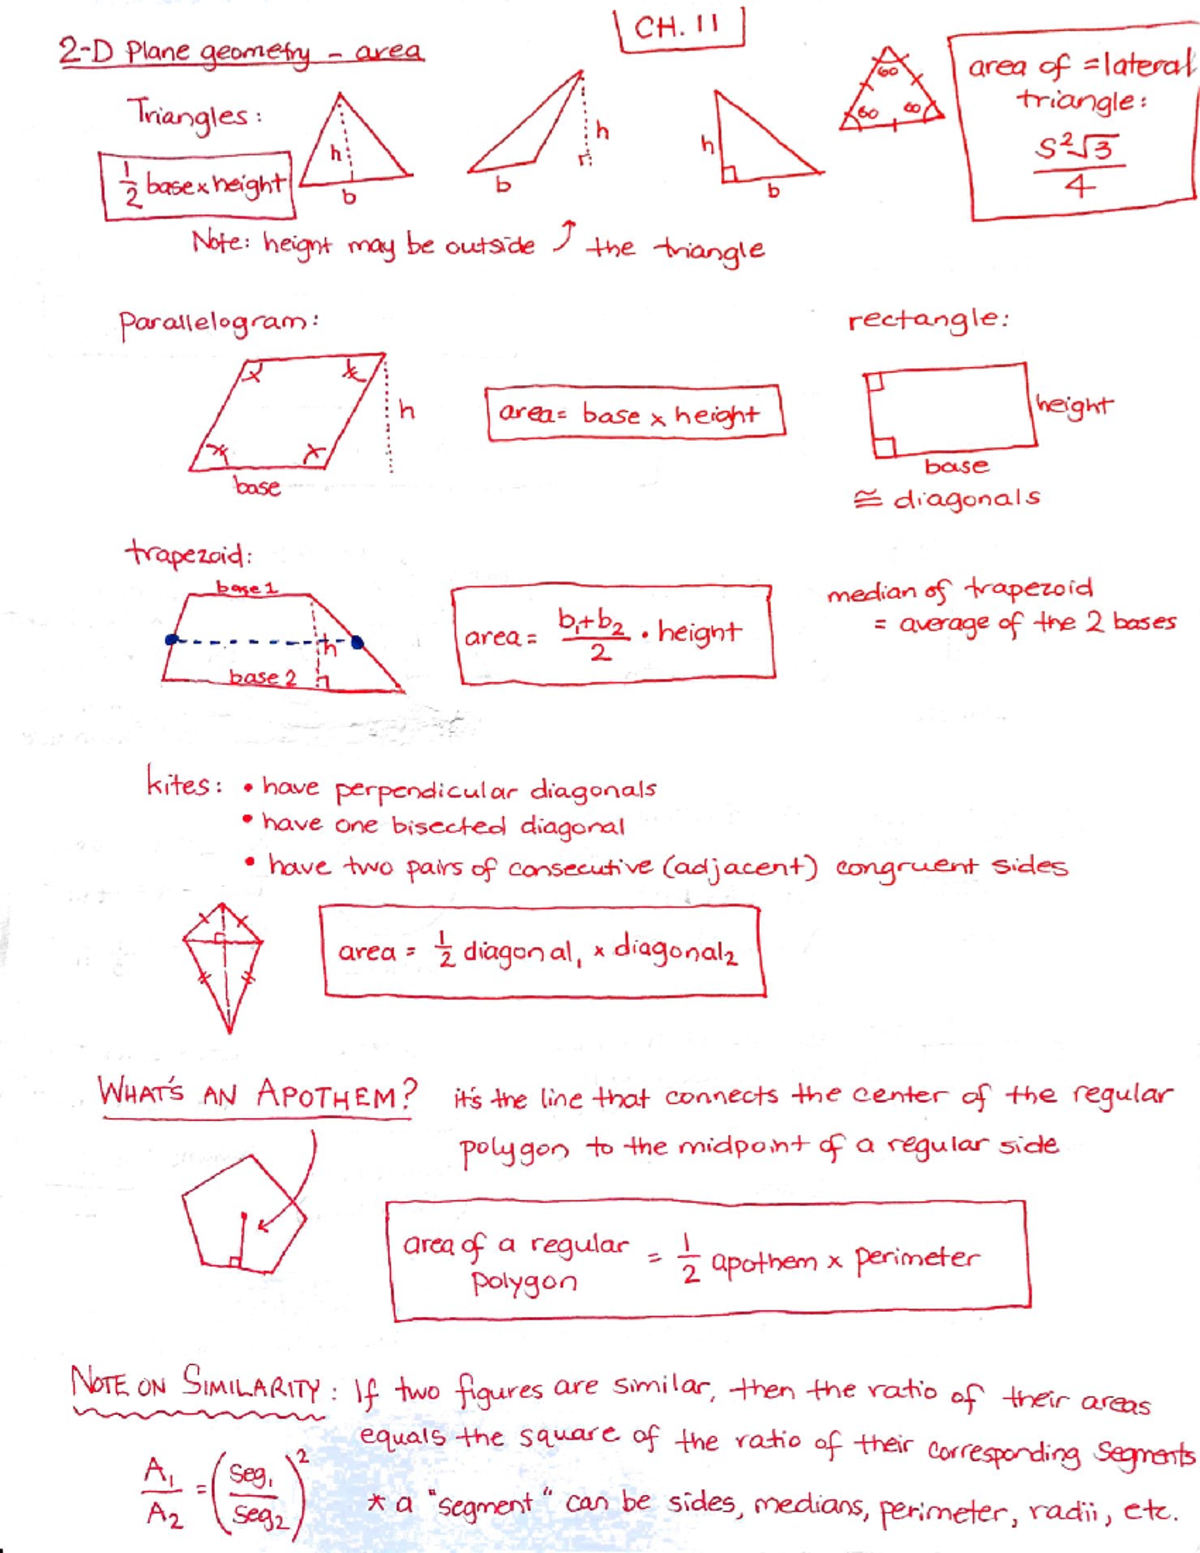 CH. 11
2-D Plane geometry - area
Triangles:
1/2 base x height
h
b
h
b
h
b
60
60
60
area of =lateral
triangle:
S²√3
4
Note: height may be outside ↑ the triangle
parallelogram:
h
base
area = base x height
rectangle:
height
base
≅ diagonals
trapezoid:
base 1
h
base 2
area = b₁+b₂ / 2 • height
median of trapezoid
= average of the 2 bases
kites: • have perpendicular diagonals
• have one bisected diagonal
• have two pairs of consecutive (adjacent) congruent sides
area = 1/2 diagonal₁ x diagonal₂
WHAT'S AN APOTHEM? it's the line that connects the center of the regular
polygon to the midpoint of a regular side
area of a regular
polygon = 1/2 apothem x perimeter
NOTE ON SIMILARITY: If two figures are similar, then the ratio of their areas
equals the square of the ratio of their corresponding segments
A₁/A₂ = (seg₁/seg₂)²
* a "segment" can be sides, medians, perimeter, radii, etc.